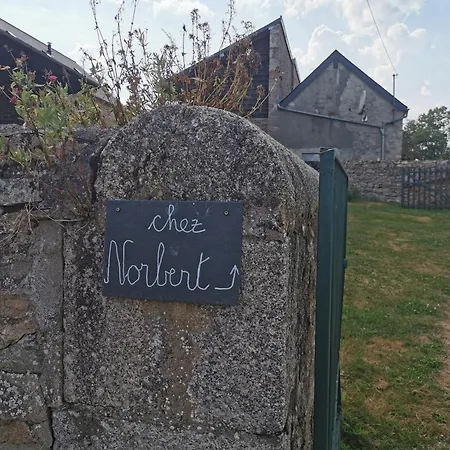 chez
Norbert